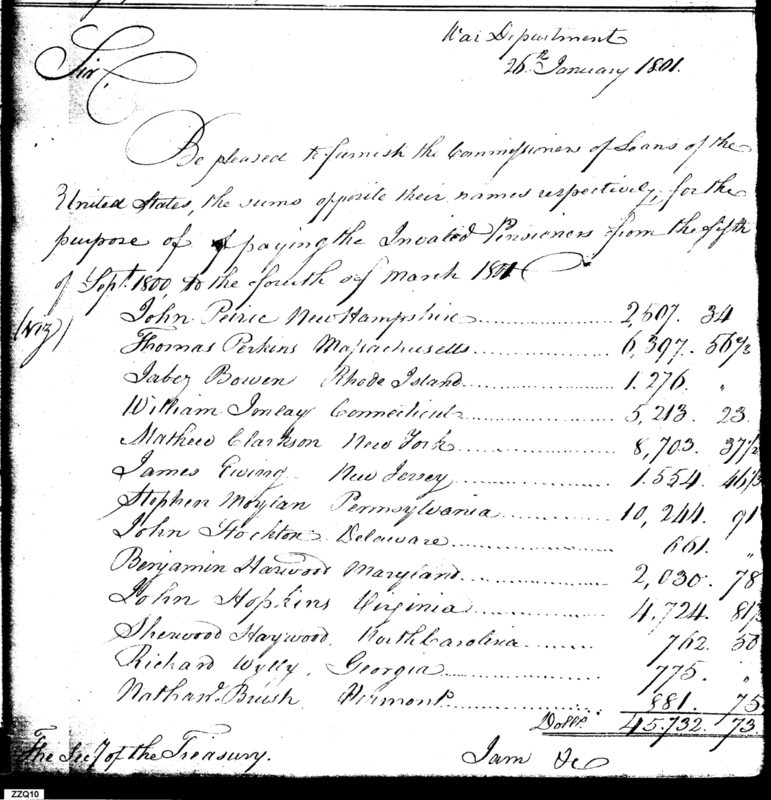 War Department
26th January 1801.
Sir
Be pleased to furnish the Commissioners of Loans of the
United States, the sums opposite their names respectively, for the
purpose of paying the Invalid Pensioners from the fifth
of Sept. 1800 to the fourth of March 1801
(viz)
John Peirce New Hampshire 2507. 34
Thomas Perkins Massachusetts 6,397. 56 2/3
Jabez Bowen Rhode Island 1.276. "
William Imlay Connecticut 5,213. 23.
Mathew Clarkson New York 8,703. 37 1/2
James Ewing New Jersey 1.554. 46 1/3
Stephen Moylan Pennsylvania 10,244. 91
John Stockton Delaware 661. "
Benjamin Harwood Maryland 2,030. 78
John Hopkins Virginia 4.724. 81
Sherwood Haywood North Carolina 762. 50
Richard Wylly, Georgia 775. "
Nathanl. Brush Vermont 881. 75
Dolls. 45.732. 73.
The Secy of the Treasury. I am &c
ZZQ10